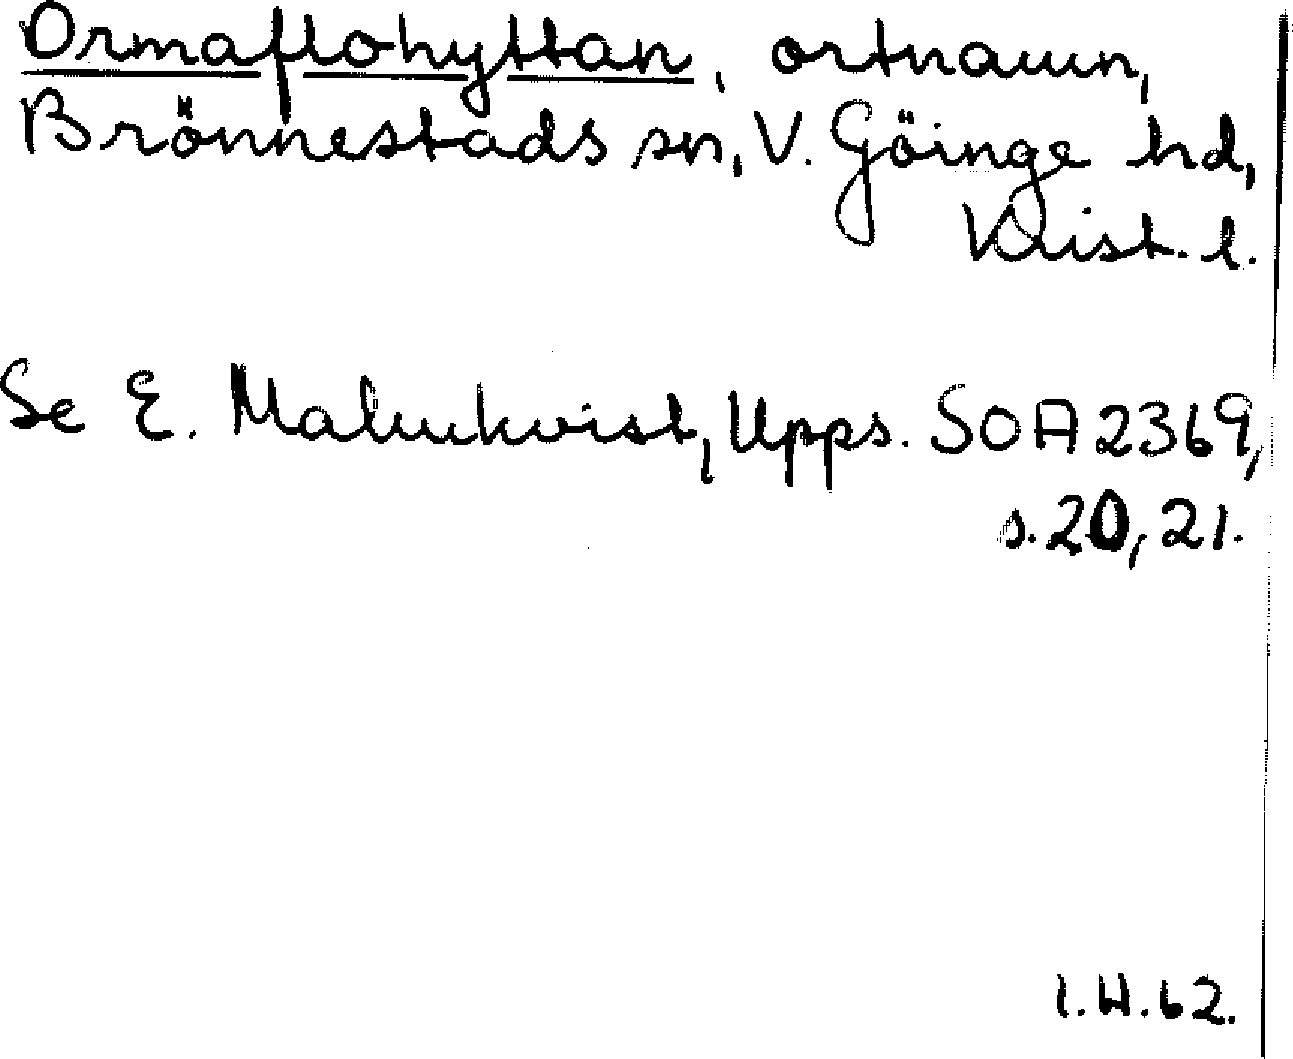 Ormaflohyttan, ortnamn,
Brönnestads sn, V. Göinge hd,
Krist. l.
Se E. Malmkvist, Upps. SOA 2369,
s. 20, 21.
I.H.62.